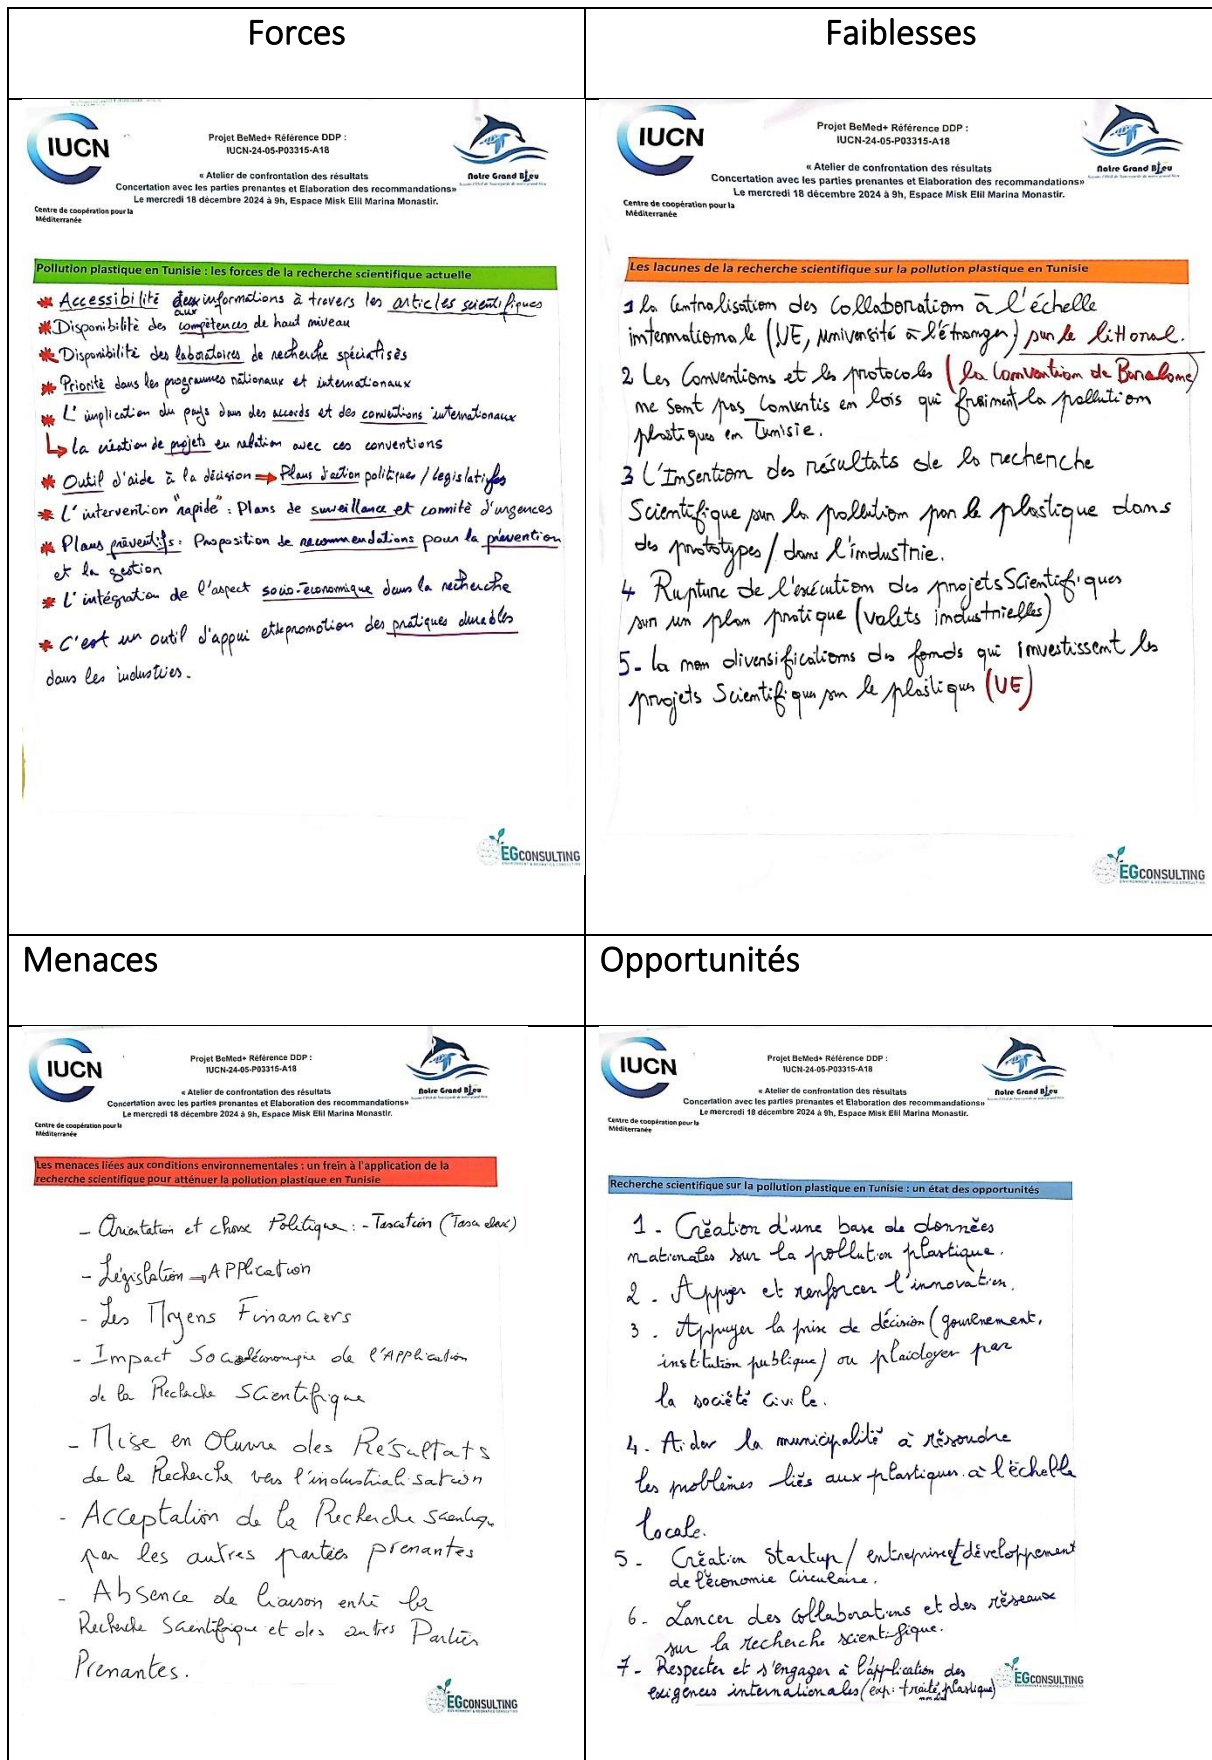 Forces
Faiblesses
IUCN
Projet BeMed+ Référence DDP :
IUCN-24-05-P03315-A18
Notre Grand Bleu
« Atelier de confrontation des résultats
Concertation avec les parties prenantes et Elaboration des recommandations»
Le mercredi 18 décembre 2024 à 9h, Espace Misk Elil Marina Monastir.
Centre de coopération pour la
Méditerranée
Pollution plastique en Tunisie : les forces de la recherche scientifique actuelle
* Accessibilité aux informations à travers les articles scientifiques
* Disponibilité des compétences de haut niveau
* Disponibilité des laboratoires de recherche spécialisés
* Priorité dans les programmes nationaux et internationaux
* L'implication du pays dans des accords et des conventions internationaux
↳ la création de projets en relation avec ces conventions
* Outil d'aide à la décision ⇒ Plans d'action politiques / legislatifs
* L'intervention "rapide" : Plans de surveillance et comité d'urgences
* Plans préventifs : Proposition de recommendations pour la prévention
et la gestion
* L'intégration de l'aspect socio-économique dans la recherche
* C'est un outil d'appui et de promotion des pratiques durables
dans les industries.
EGCONSULTING
IUCN
Projet BeMed+ Référence DDP :
IUCN-24-05-P03315-A18
Notre Grand Bleu
« Atelier de confrontation des résultats
Concertation avec les parties prenantes et Elaboration des recommandations»
Le mercredi 18 décembre 2024 à 9h, Espace Misk Elil Marina Monastir.
Centre de coopération pour la
Méditerranée
Les lacunes de la recherche scientifique sur la pollution plastique en Tunisie
1 la Centralisation des Collaboration à l'échelle
internationale (UE, université à l'étranger) sur le littoral.
2 Les Conventions et les protocoles (la Convention de Barcelone)
ne sont pas convertis en lois qui freinent la pollution
plastiques en Tunisie.
3 L'Insertion des résultats de la recherche
Scientifique sur la pollution par le plastique dans
des prototypes / dans l'industrie.
4 Rupture de l'exécution des projets Scientifiques
sur un plan pratique (volets industrielles)
5- la non diversifications des fonds qui investissent les
projets Scientifique sur le plastiques (UE)
EGCONSULTING
Menaces
Opportunités
IUCN
Projet BeMed+ Référence DDP :
IUCN-24-05-P03315-A18
Notre Grand Bleu
« Atelier de confrontation des résultats
Concertation avec les parties prenantes et Elaboration des recommandations»
Le mercredi 18 décembre 2024 à 9h, Espace Misk Elil Marina Monastir.
Centre de coopération pour la
Méditerranée
Les menaces liées aux conditions environnementales : un frein à l'application de la
recherche scientifique pour atténuer la pollution plastique en Tunisie
- Orientation et choix Politique : - Taxation
- Législation → APPlication
- Les Moyens Financiers
- Impact Socioéconomique de l'APPlication
de la Recherche Scientifique
- Mise en Oeuvre des Résultats
de la Recherche vers l'industrialisation
- Acceptation de la Recherche scientifique
par les autres parties prenantes
- Absence de liaison entre la
Recherche Scientifique et des autres Parties
Prenantes.
EGCONSULTING
IUCN
Projet BeMed+ Référence DDP :
IUCN-24-05-P03315-A18
Notre Grand Bleu
« Atelier de confrontation des résultats
Concertation avec les parties prenantes et Elaboration des recommandations»
Le mercredi 18 décembre 2024 à 9h, Espace Misk Elil Marina Monastir.
Centre de coopération pour la
Méditerranée
Recherche scientifique sur la pollution plastique en Tunisie : un état des opportunités
1 - Création d'une base de données
nationales sur la pollution plastique.
2 - Appuyer et renforcer l'innovation.
3 - Appuyer la prise de décision (gouvernement,
institution publique) ou plaidoyer par
la société civile.
4 - Aider la municipalité à résoudre
les problèmes liés aux plastiques à l'échelle
locale.
5 - Création Startup / entreprise et développement
de l'économie Circulaire.
6 - Lancer des collaborations et des réseaux
sur la recherche scientifique.
7 - Respecter et s'engager à l'application des
exigences internationales (exp: traité plastique)
EGCONSULTING